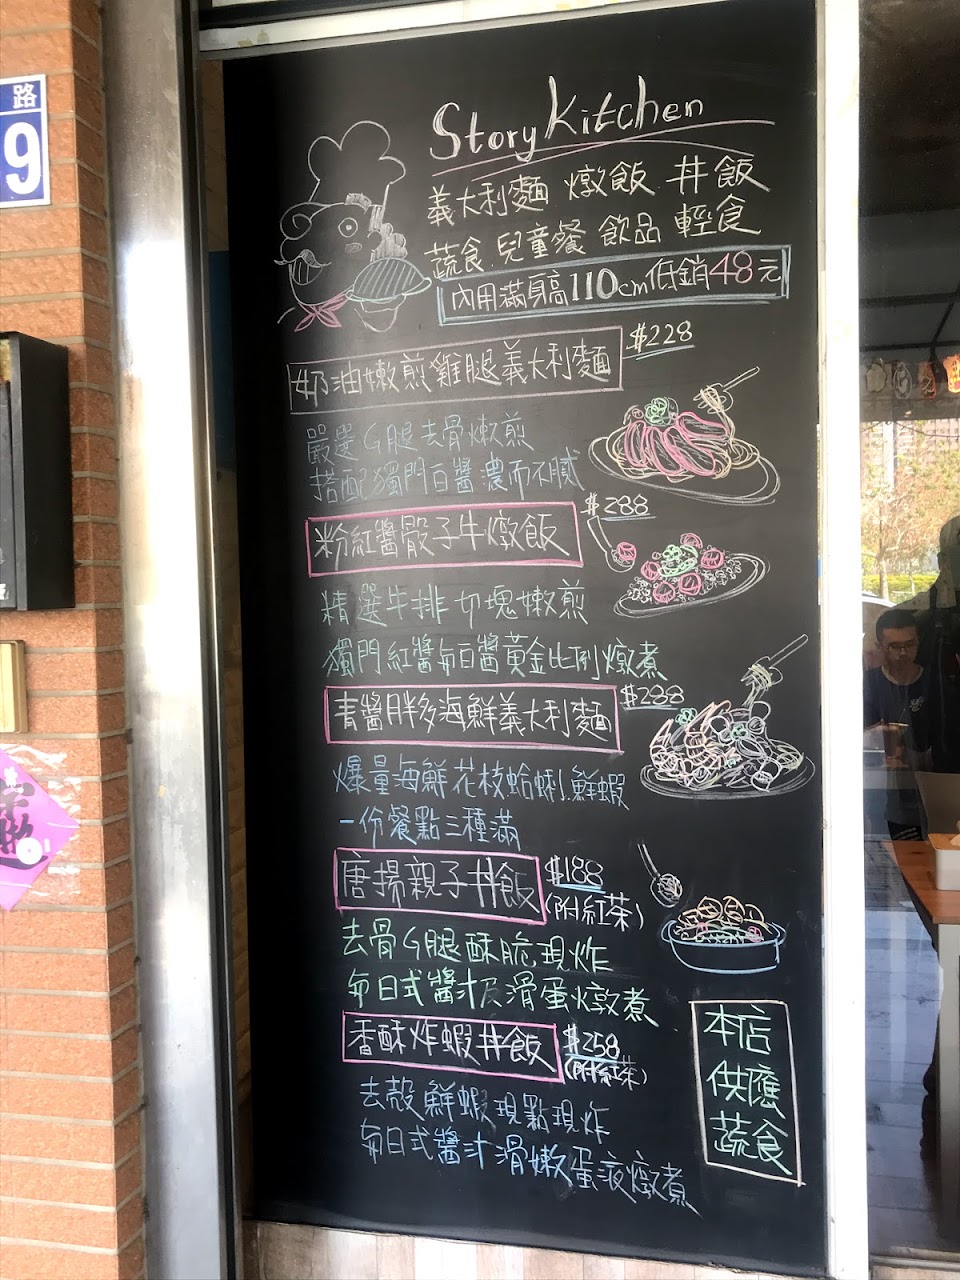 路
9
Story Kitchen
義大利麵 燉飯 丼飯
蔬食 兒童餐 飲品 輕食
內用滿身高110cm低銷48元
奶油嫩煎雞腿義大利麵 $228
嚴選G腿去骨嫩煎
搭配獨門白醬濃而不膩
粉紅醬骰子牛燉飯 $288
精選牛排切塊嫩煎
獨門紅醬與白醬黃金比例燉煮
青醬胖多海鮮義大利麵 $288
爆量海鮮花枝蛤蜊.鮮蝦
一份餐點三種滿
唐揚親子丼飯 $188
(附紅茶)
去骨G腿酥脆現炸
與日式醬汁及滑蛋燉煮
香酥炸蝦丼飯 $258
(附紅茶)
去殼鮮蝦現點現炸
與日式醬汁滑嫩蛋液燉煮
本店
供應
蔬食